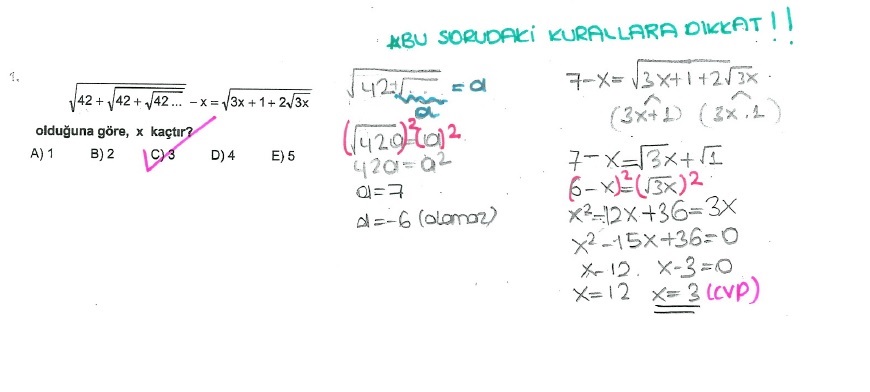 *BU SORUDAKİ KURALLARA DİKKAT!!
1.
√(42 + √(42 + √(42 ...))) − x = √(3x + 1 + 2√3x)
olduğuna göre, x kaçtır?
A) 1 B) 2 C) 3 D) 4 E) 5
√(42+√...) = a
a
(√42a)² = (a)²
42a = a²
a = 7
a = -6 (olamaz)
7-x = √(3x+1+2√3x)
(3x+1) (3x.1)
7-x = √3x + √1
(6-x)² = (√3x)²
x²-12x+36 = 3x
x²-15x+36=0
x-12. x-3=0
x=12 x=3 (cvp)